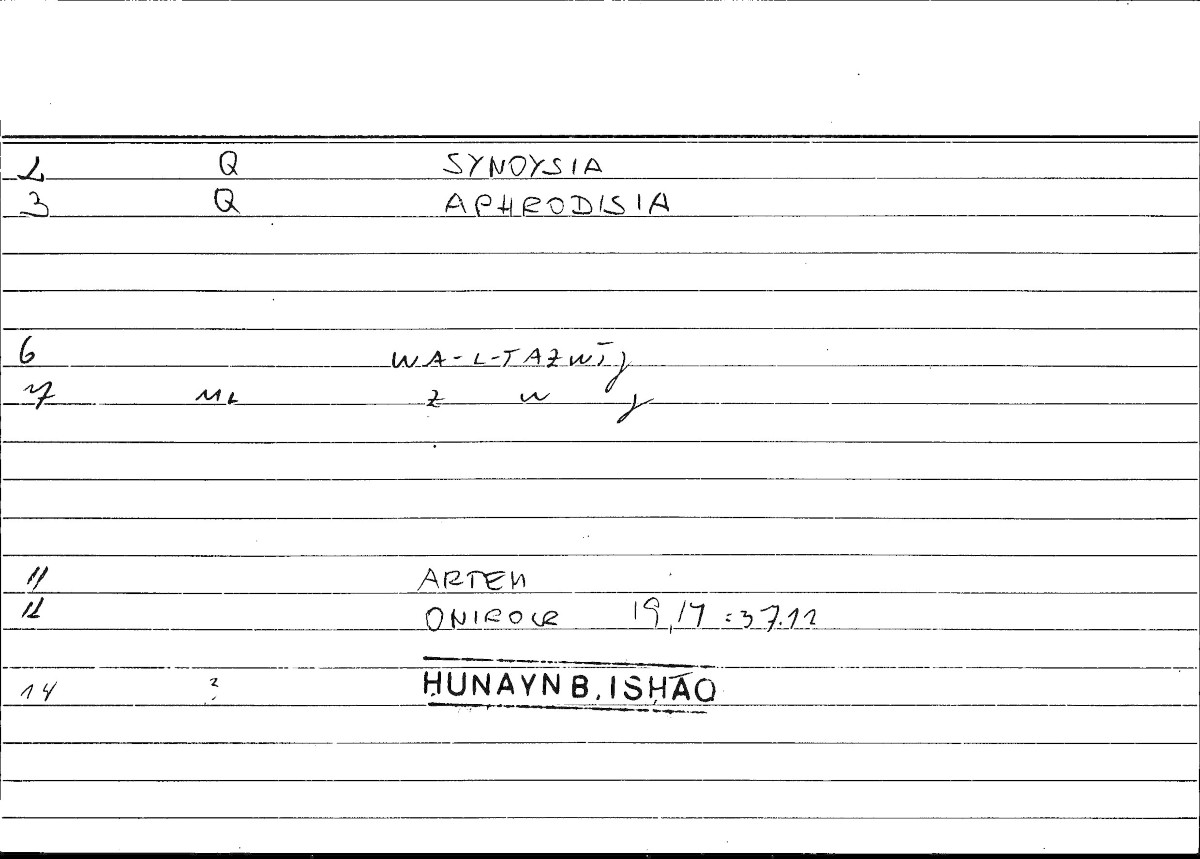 2 Q SYNOYSIA
3 Q APHRODISIA
6 WA-L-TAZWĪJ
7 ML Z W J
11 ARTEM
12 ONIROCR 19,17 = 37.12
14 ? ḤUNAYN B. ISḤĀQ